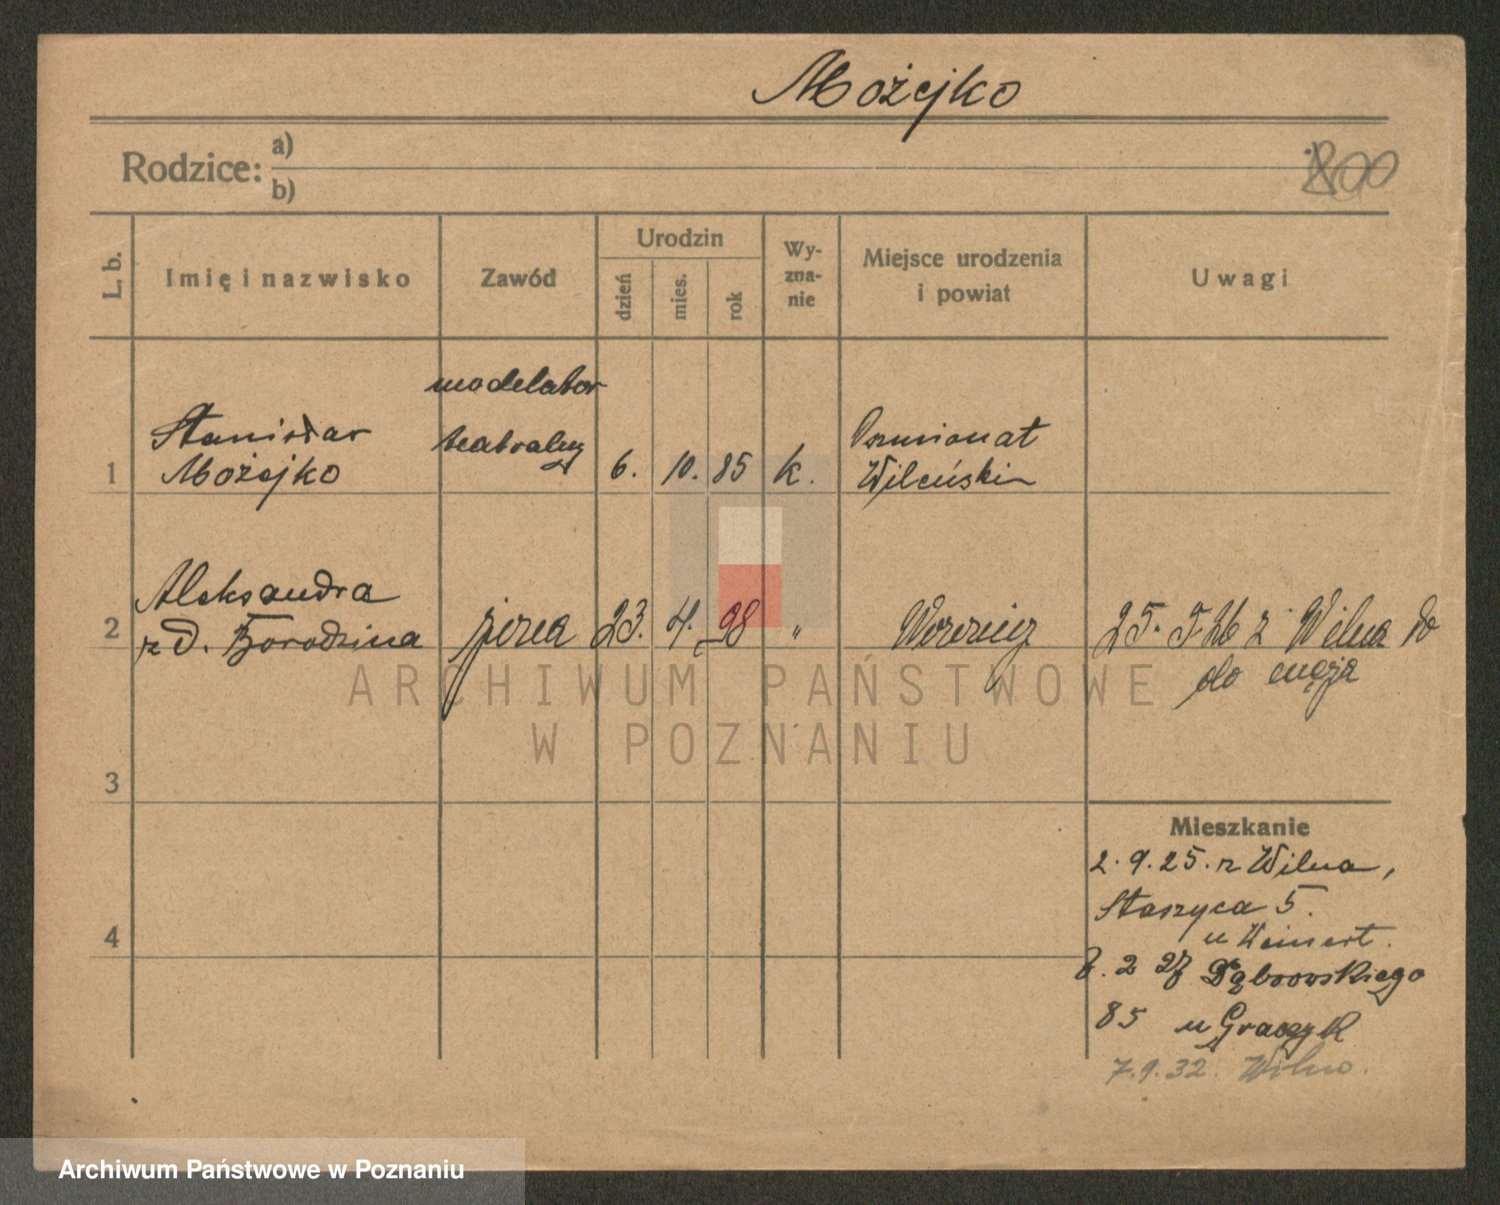 Możejko
Rodzice:
a)
b)
L. b.
Imię i nazwisko
Zawód
Urodzin
dzień
mies.
rok
Wy-
zna-
nie
Miejsce urodzenia
i powiat
Uwagi
1
Stanisław
Możejko
modelator
teatralny
6. 10. 85
k.
Wileński
2
Aleksandra
z d. Borodzina
żona
23. 4. 98
"
25. 5. 26 z Wilna do
do męża
ARCHIWUM PAŃSTWOWE
W POZNANIU
3
4
Mieszkanie
2. 9. 25. z Wilna,
Staszyca 5.
u Weinert.
8. 2 27 Dąbrowskiego
85 u Graczyk
7.9.32. Wilno.
Archiwum Państwowe w Poznaniu